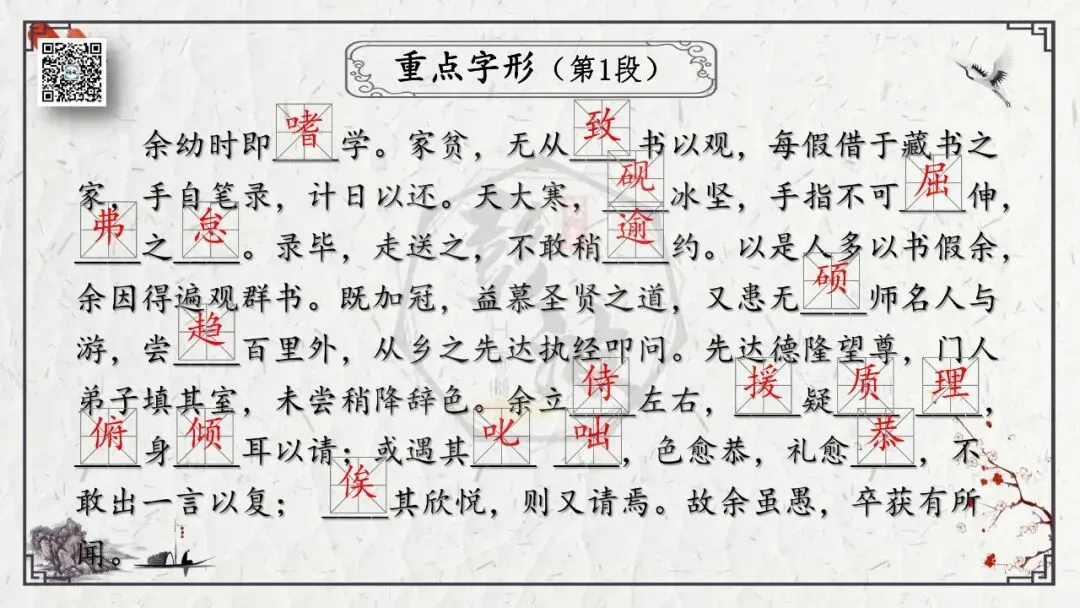 重点字形（第1段）
余幼时即嗜学。家贫，无从致书以观，每假借于藏书之
家，手自笔录，计日以还。天大寒，砚冰坚，手指不可屈伸，
弗之怠。录毕，走送之，不敢稍逾约。以是人多以书假余，
余因得遍观群书。既加冠，益慕圣贤之道，又患无硕师名人与
游，尝趋百里外，从乡之先达执经叩问。先达德隆望尊，门人
弟子填其室，未尝稍降辞色。余立侍左右，援疑质理，
俯身倾耳以请；或遇其叱咄，色愈恭，礼愈恭，不
敢出一言以复；俟其欣悦，则又请焉。故余虽愚，卒获有所
闻。